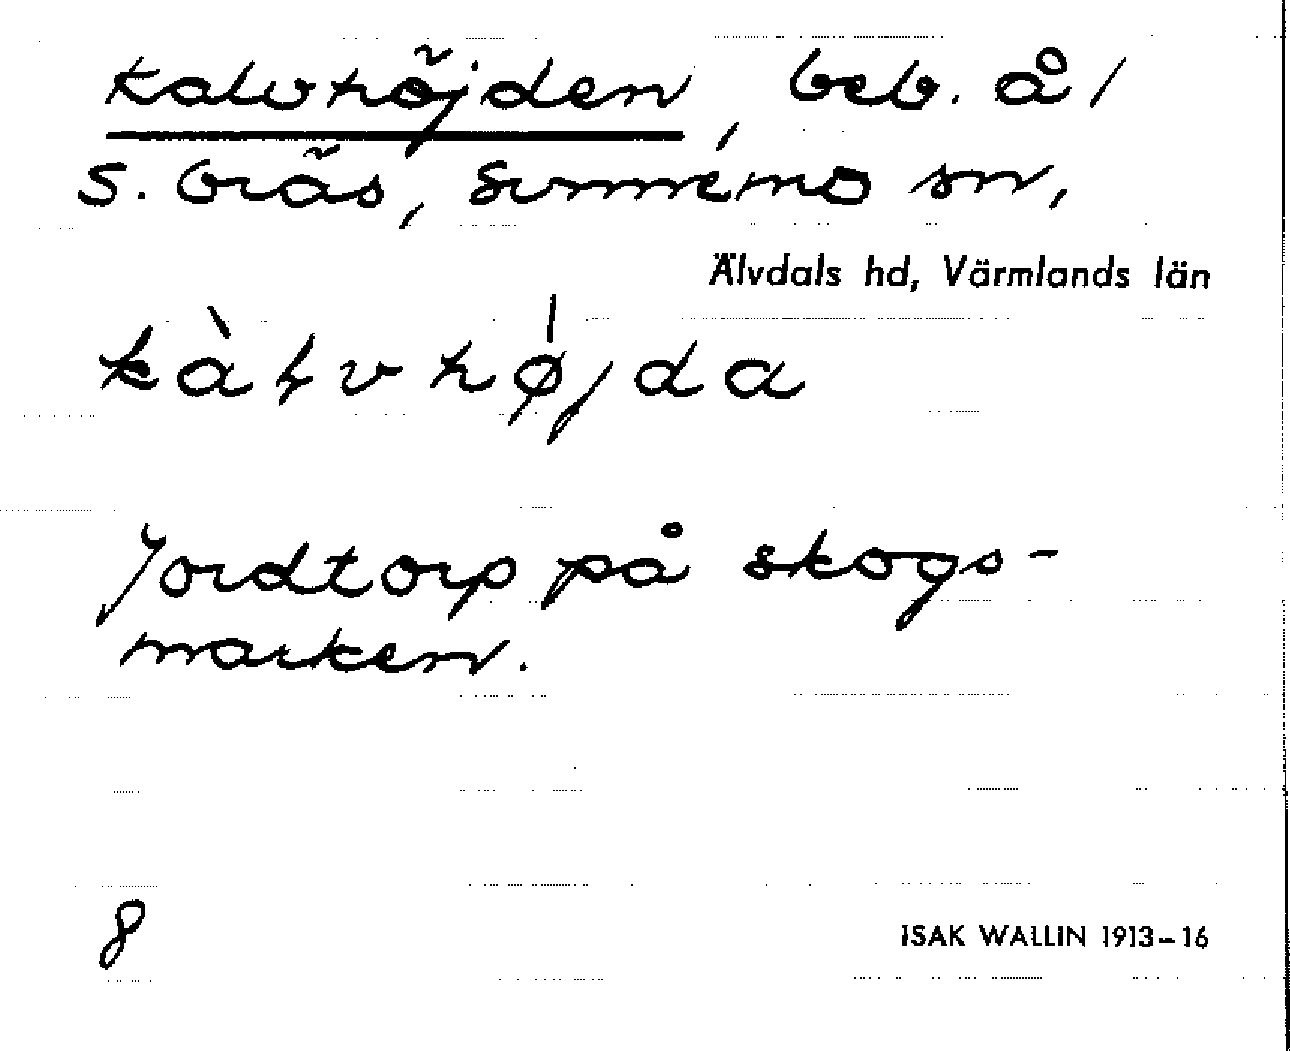 Kalvhöjden, beb. å/
S. Bräs, Sunnemo sn,
Älvdals hd, Värmlands län
kàɫvhø̍jda
Jordtorp på skogs-
marken.
8
ISAK WALLIN 1913–16